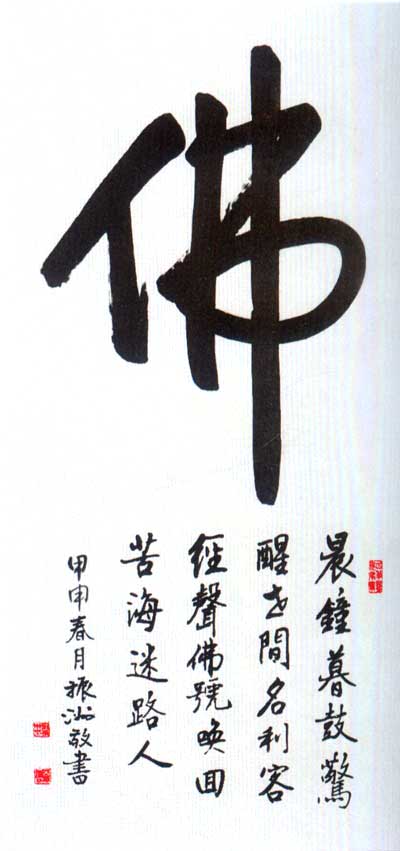 佛
晨鐘暮鼓驚
醒世間名利客
經聲佛號喚回
苦海迷路人
甲申春月振洲敬書